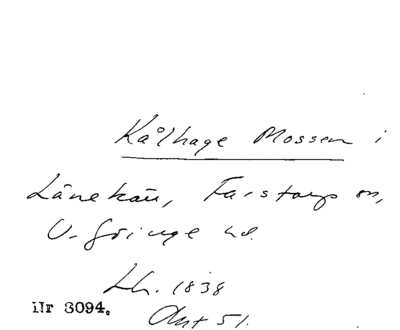 Kålhage Mossen i
Lånekärr, Farstorps sn,
V. Göinge hd.
Lh. 1838
Akt 51.
Nr 3094.